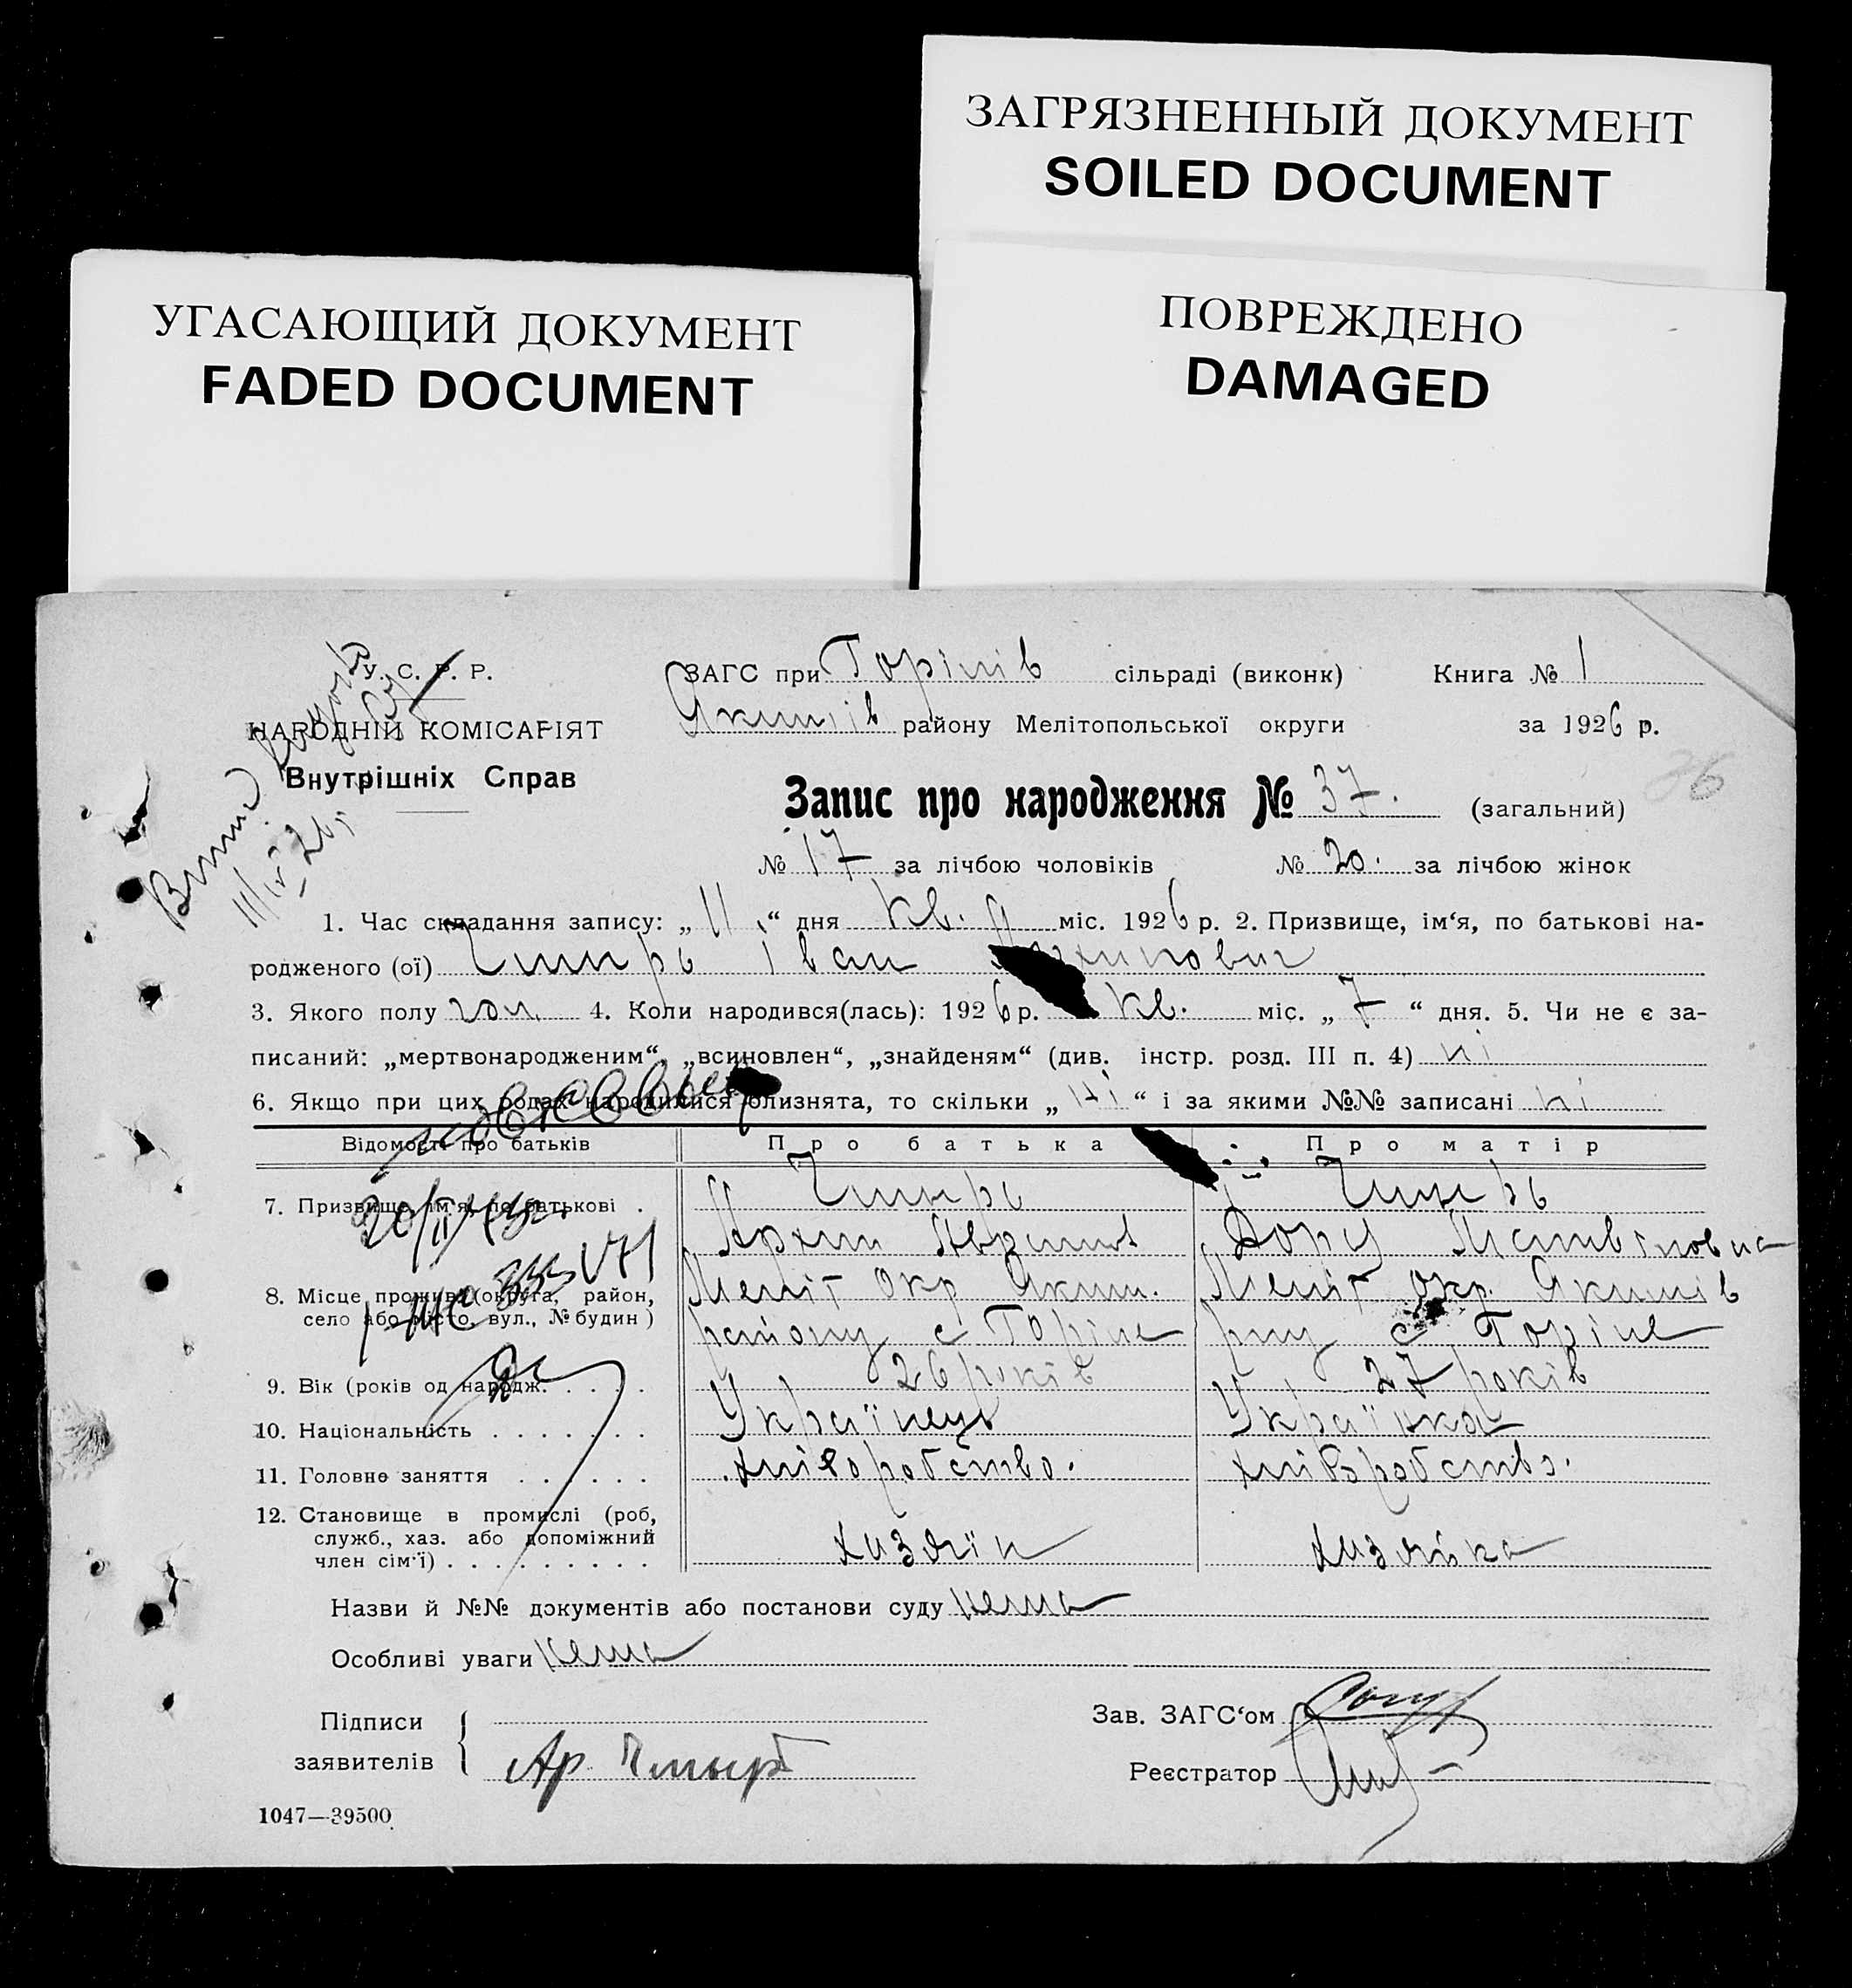 ЗАГРЯЗНЕННЫЙ ДОКУМЕНТ
SOILED DOCUMENT
УГАСАЮЩИЙ ДОКУМЕНТ
FADED DOCUMENT
ПОВРЕЖДЕНО
DAMAGED
У. С. Р. Р.
НАРОДНІЙ КОМІСАРІЯТ
Внутрішніх Справ
ЗАГС при Горілів сільраді (виконк) Книга № 1
Якимів району Мелітопольської округи за 1926 р.
Запис про народження № 37. (загальний)
36
№ 17 за лічбою чоловіків № 20. за лічбою жінок
1. Час складання запису: „ 11 “ дня кв. міс. 1926 р. 2. Призвище, ім‘я, по батькові на-
родженого (ої) Чмирь Іван Архипович
3. Якого полу чол. 4. Коли народився(лась): 1926 р. кв. міс. „ 7 “ дня. 5. Чи не є за-
писаний: „мертвонародженим“, „всиновлен“, „знайденям“ (див. інстр. розд. III п. 4) ні
6. Якщо при цих родах народилися близнята, то скільки „ ні “ і за якими №№ записані ні
Відомості про батьків Про батька Про матір
7. Призвище, ім‘я, по батькові . Чмирь Чмирь
Архип Дора
8. Місце прожив. (округа, район, Меліт окр Яким. Меліт окр. Якимів
село або місто, вул., № будин) району с Горіле рну с Горіле
9. Вік (років од народж. . . . . 26 років 27 років
10. Національність . . . . . . . Українець Українка
11. Головне заняття . . . . . . хліборобство. хліборобство.
12. Становище в промислі (роб,
служб., хаз. або допоміжний
член сім‘ї) . . . . . . . . . хазяїн хазяйка
Назви й №№ документів або постанови суду нема
Особливі уваги нема
Підписи
заявителів Ар Чмырь
Зав. ЗАГС‘ом
Реєстратор
1047—39500